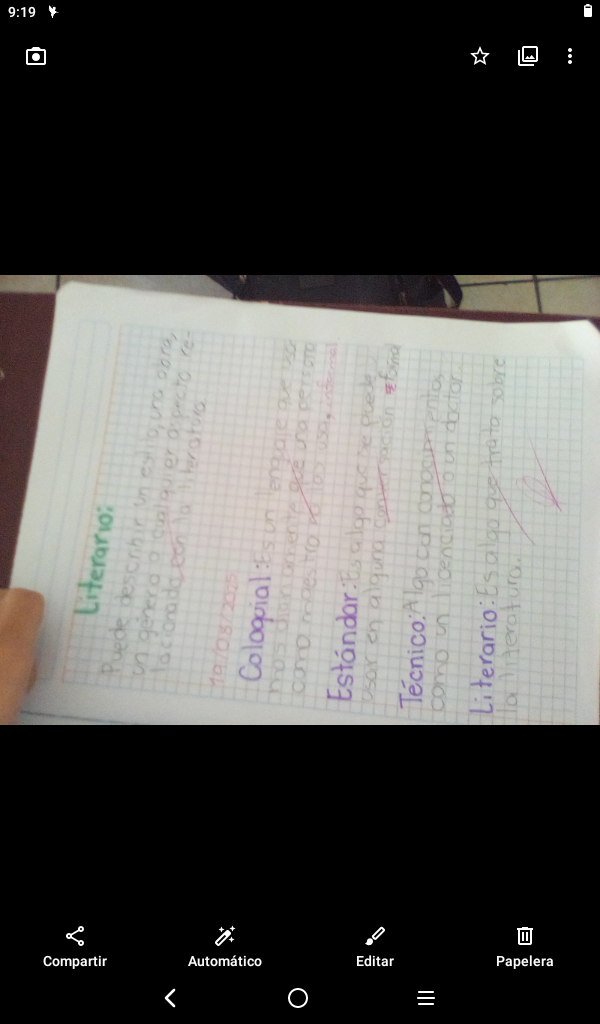 9:19
Literario:
Puede describir un estilo, una obra,
un género o cualquier aspecto re-
lacionado con la literatura
19/08/2025
Coloquial: Es un lenguaje que usa-
mos diariamente que una persona
como maestra los usa. informal.
Estándar: Es algo que se puede
usar en alguna conversación formal
Técnico: Algo con conocimientos
como un licenciado o un doctor.
Literario: Es algo que trata sobre
la literatura.
Compartir
Automático
Editar
Papelera